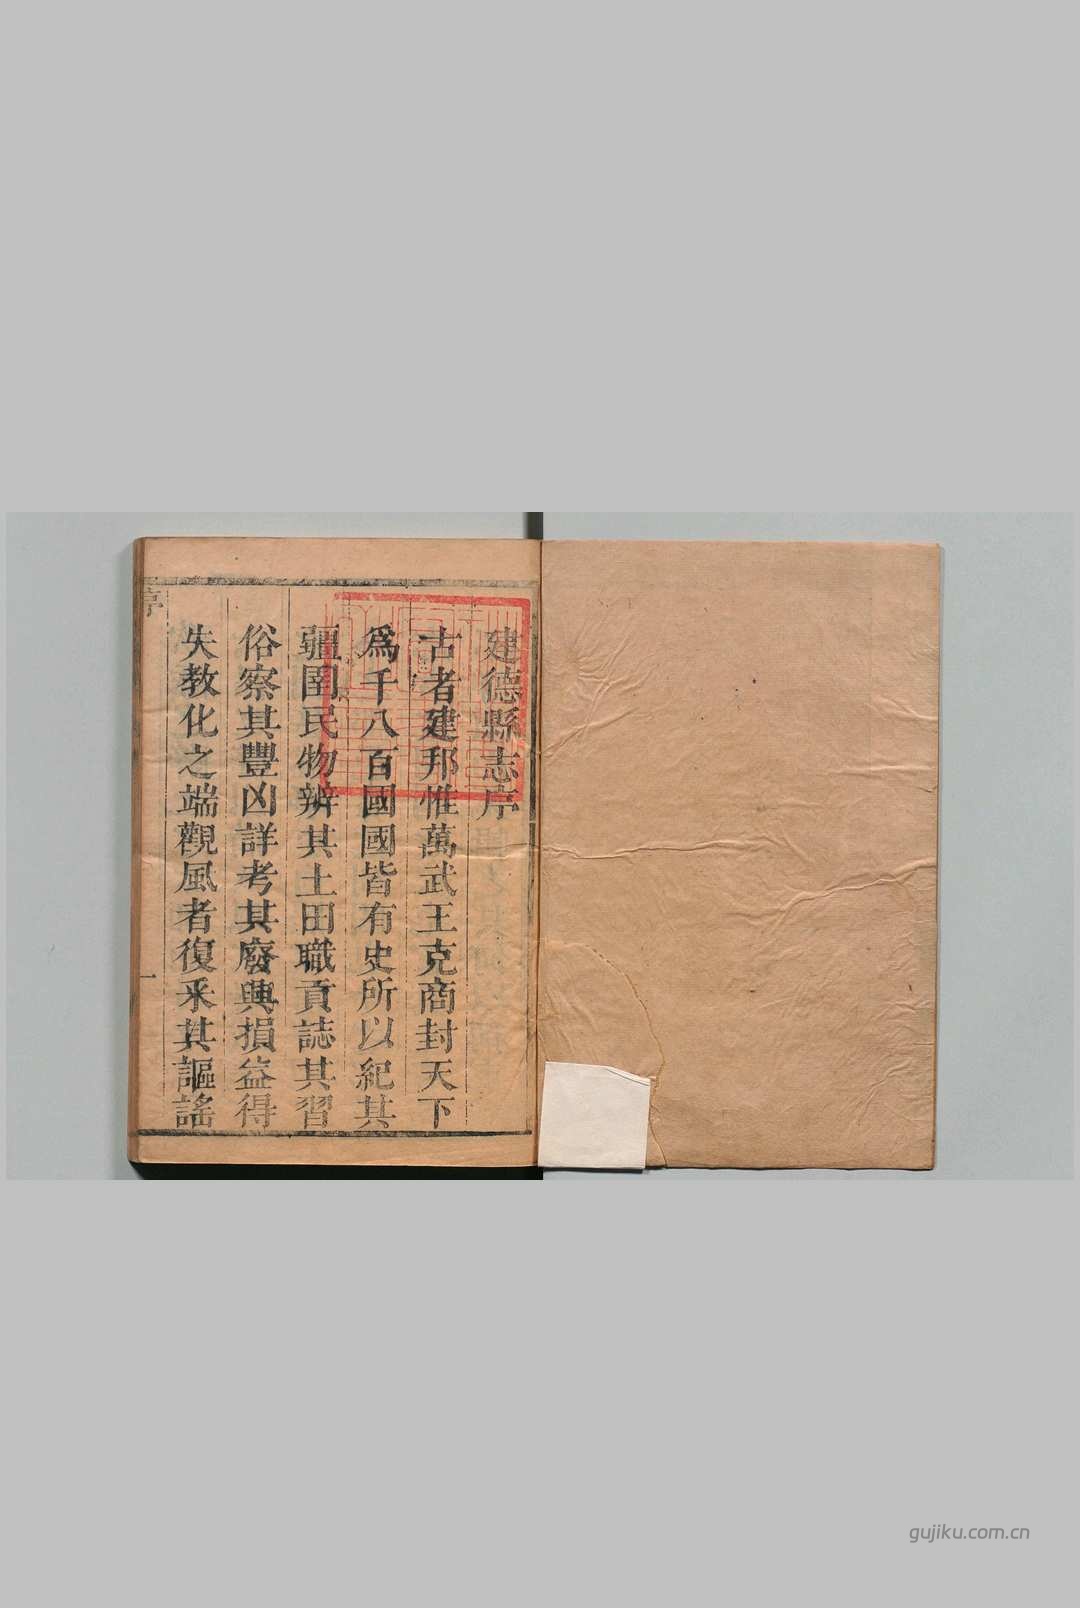 建德縣志序
古者建邦惟萬武王克商封天下
爲千八百國國皆有史所以紀其
疆圉民物辨其土田職貢誌其習
俗察其豐凶詳考其廢興損益得
失教化之端觀風者復采其謳謠
序
一
gujiku.com.cn